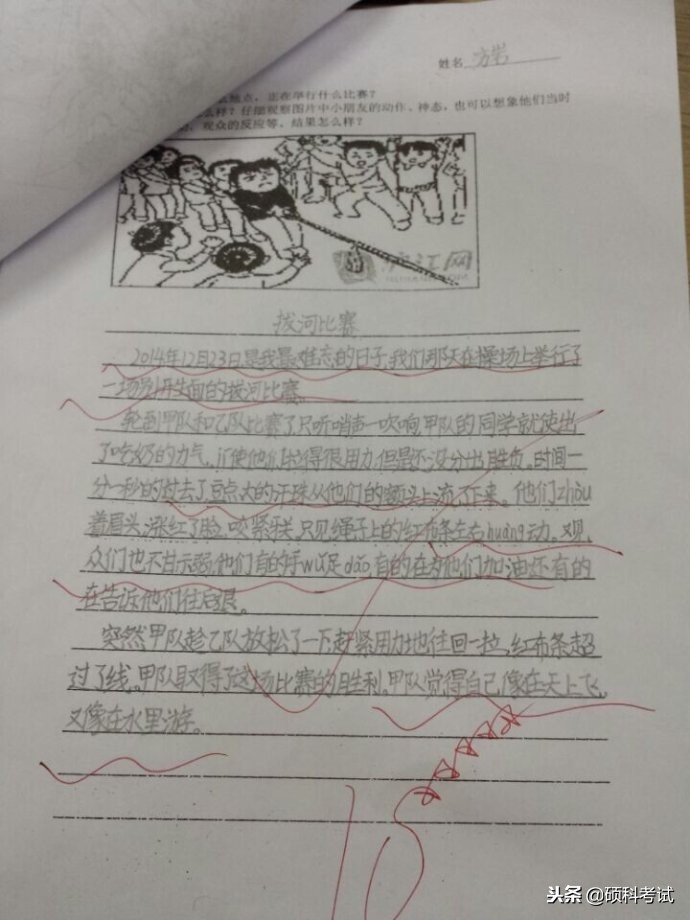 姓名
么地点，正在举行什么比赛？
么样？仔细观察图片中小朋友的动作、神态，也可以想象他们当时
观众的反应等，结果怎么样？
沪江网
拔河比赛
2014年12月23日是我最难忘的日子,我们那天在操场上举行了
一场别开生面的拔河比赛。
轮到甲队和乙队比赛了,只听哨声一吹响,甲队的同学就使出
了吃奶的力气。使他们拉得很用力,但是还没分出胜负。时间一
分一秒的过去了,豆点大的汗珠从他们的额头上流下来。他们zhòu
着眉头,涨红了脸,咬紧牙关,只见绳子上的红布条左右huàng动。观
众们也不甘示弱,他们有的手wǔ足dǎo,有的在为他们加油,还有的
在告诉他们往后退。
突然甲队趁乙队放松了一下,赶紧用力地往回一拉,红布条超
过了线。甲队取得了这场比赛的胜利。甲队觉得自己像在天上飞,
又像在水里游。
15
头条 @硕科考试